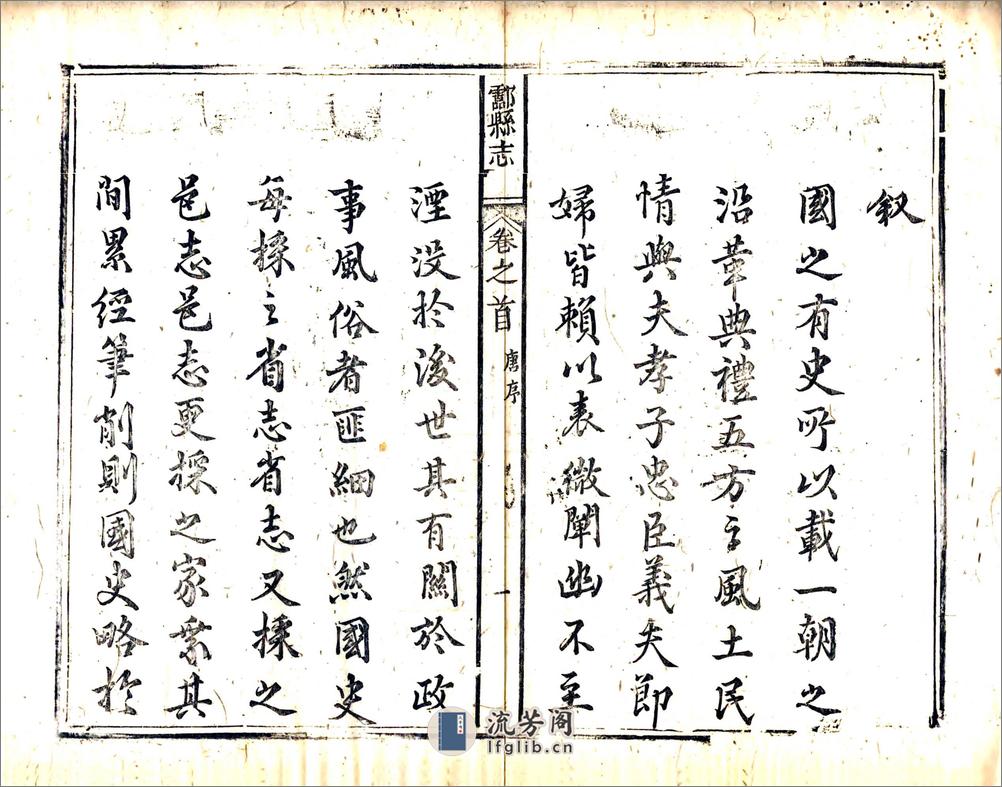 叙
國之有史所以載一朝之
沿革典禮五方之風土民
情與夫孝子忠臣義夫節
婦皆賴以表微闡幽不至
酃縣志
卷之首
唐序
一
湮没於後世其有關於政
事風俗者匪細也然國史
每採之省志省志又採之
邑志邑志更採之家乘其
間累經筆削則國史略於
流芳阁
lfglib.cn